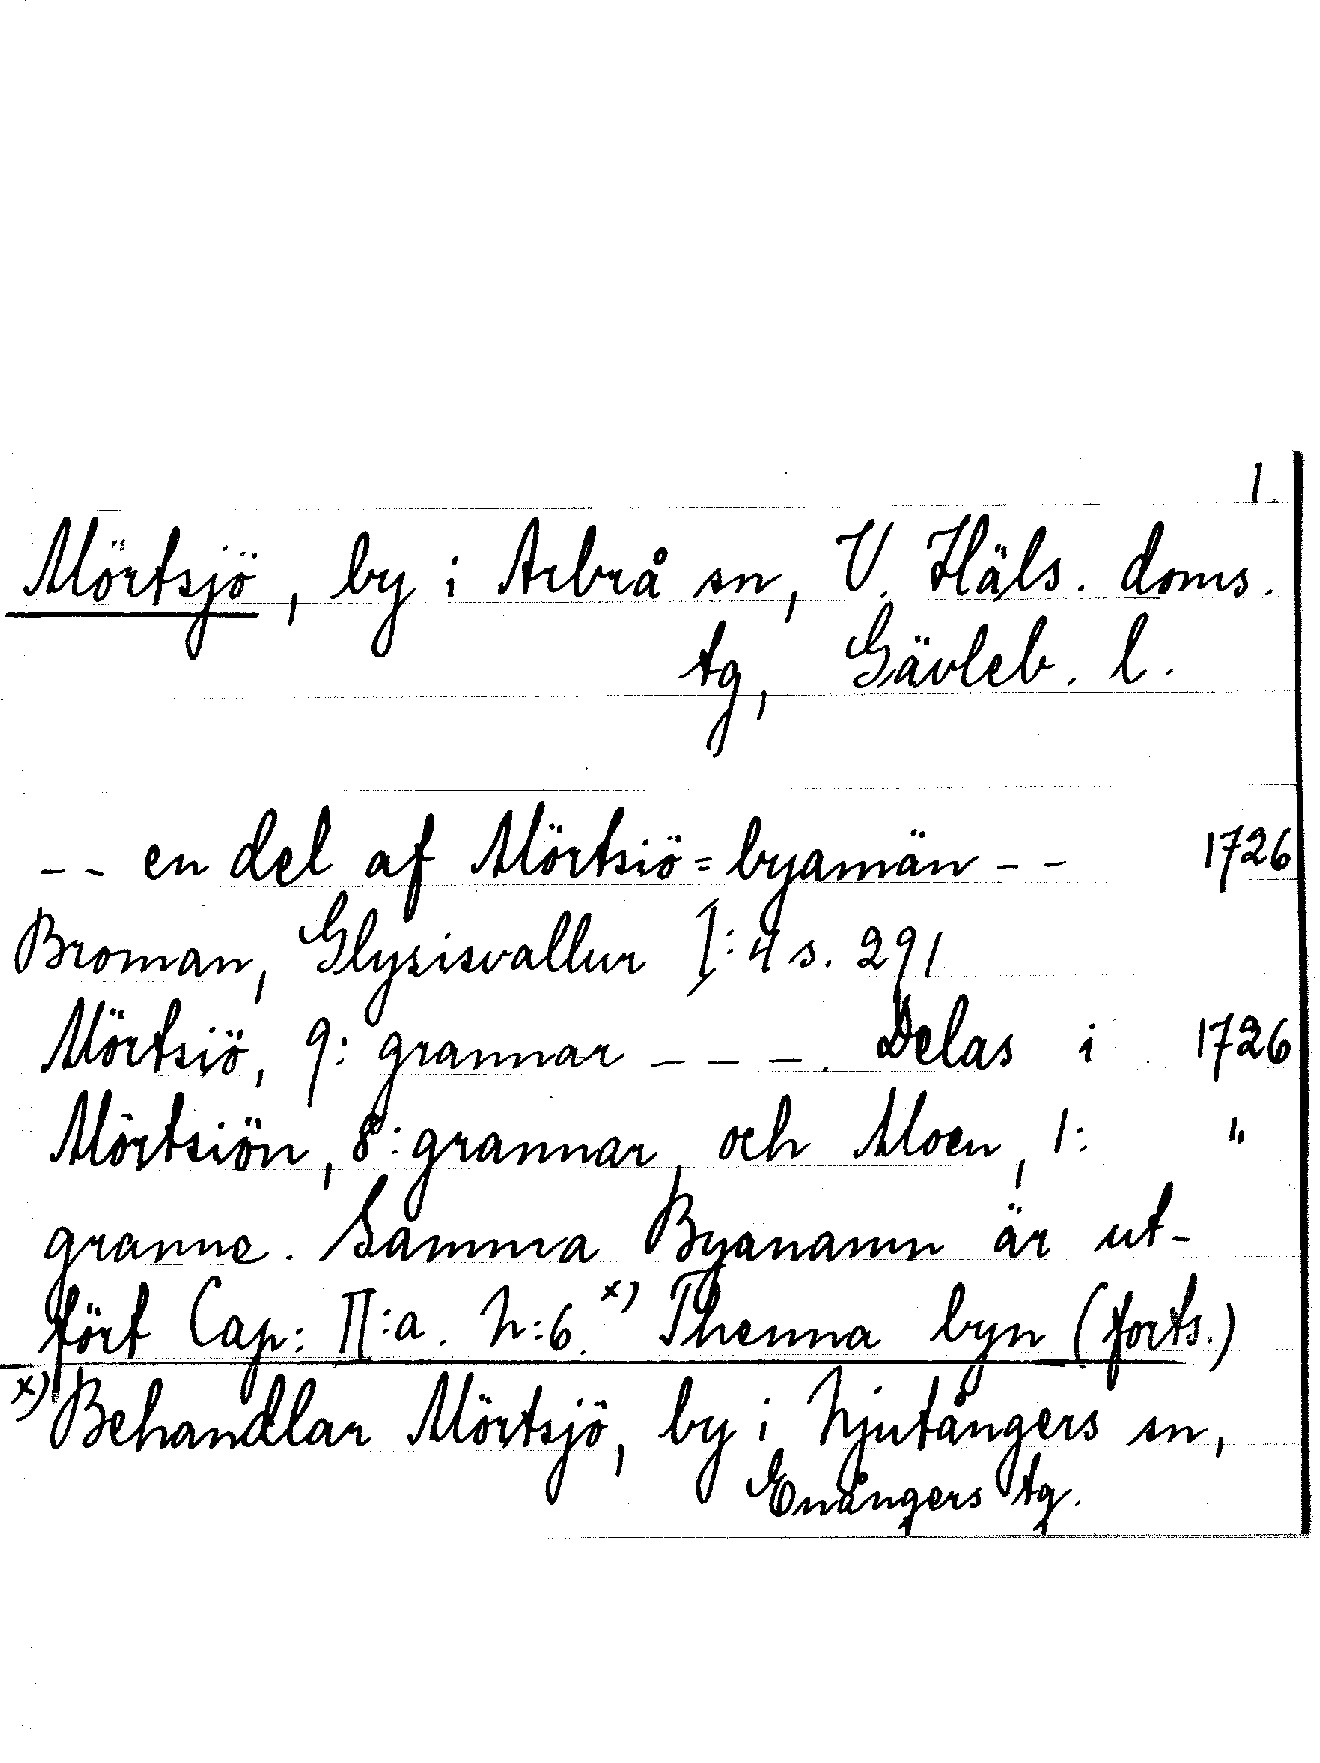 1.
Mörtsjö, by i Arbrå sn, V. Häls. doms.
tg, Gävleb. l.
-- en del af Mörtsiö=byamän -- 1726
Broman, Glysisvallur I:4 s. 291
Mörtsiö, 9: grannar ---. Delas i 1726
Mörtsiön, 8: grannar, och Moen, 1: "
granne. Samma Byanamn är ut-
fört Cap: II:a. N:6.x) Thenna byn (forts.)
x) Behandlar Mörtsjö, by i Njutångers sn,
Enångers tg.